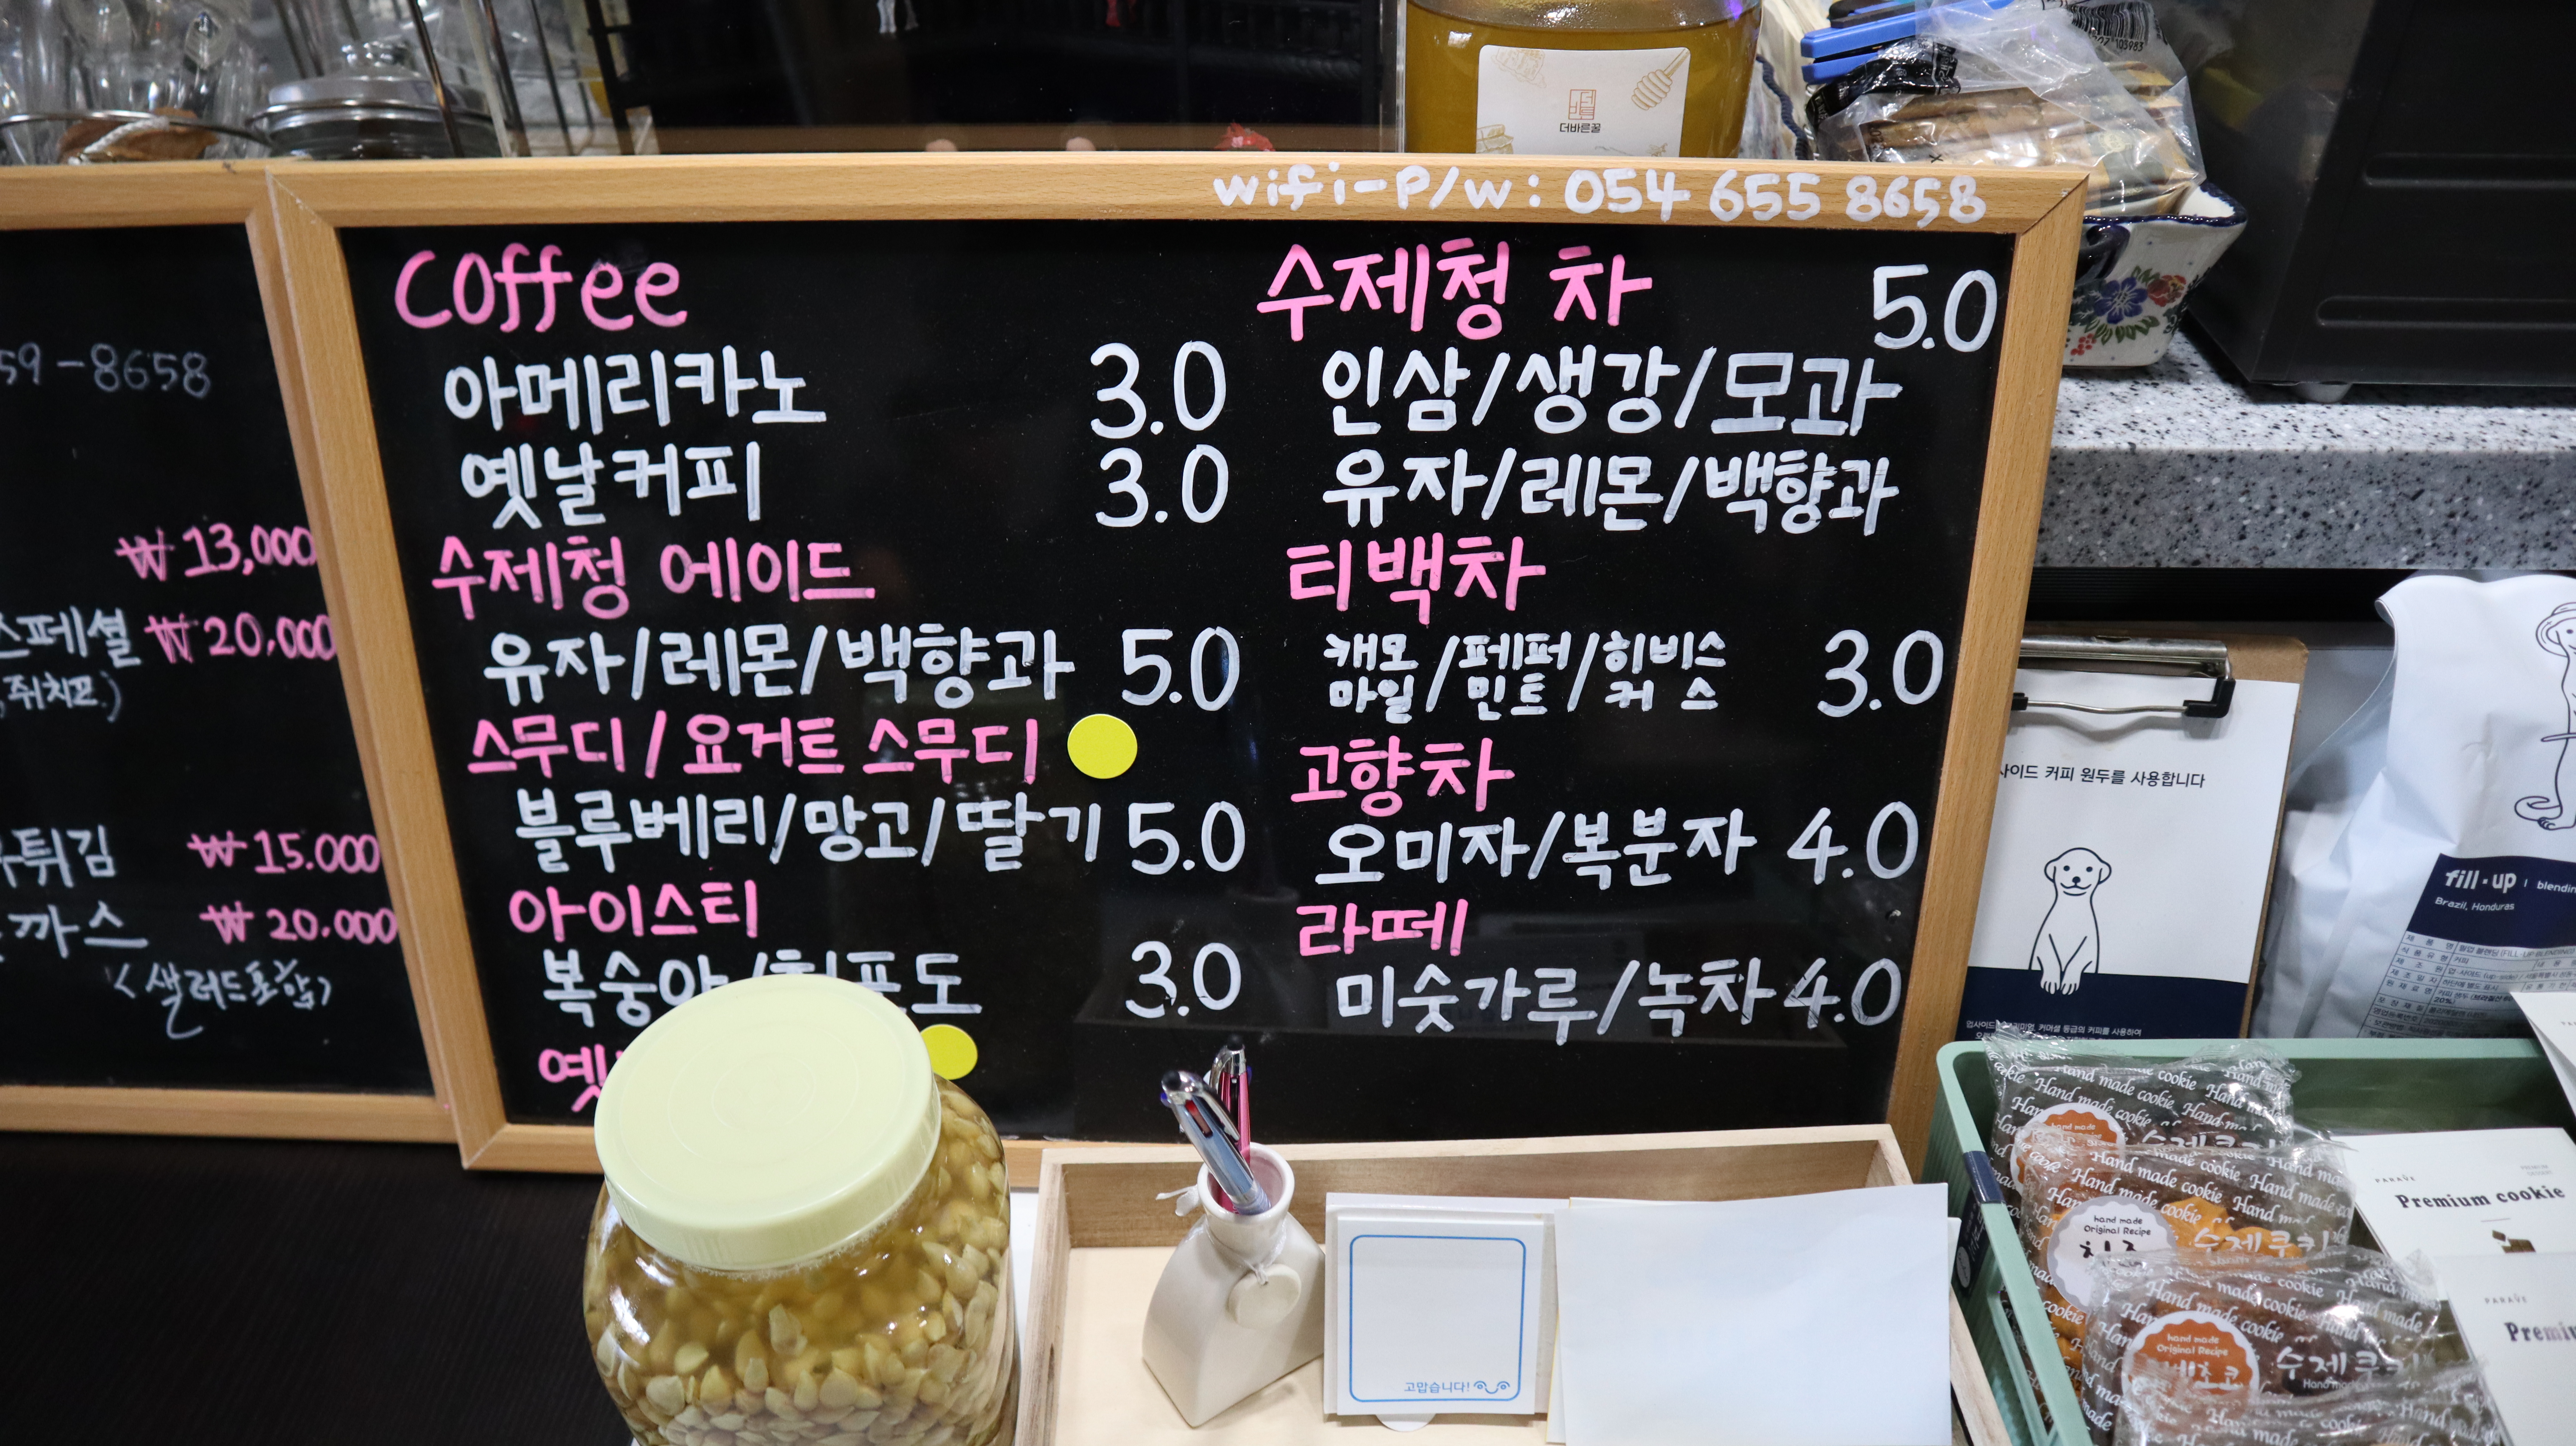 더바른꿀
wifi-P/w: 054 655 8658
Coffee
아메리카노 3.0
옛날커피 3.0
수제청 에이드
유자/레몬/백향과 5.0
스무디/요거트 스무디
블루베리/망고/딸기 5.0
아이스티
복숭아/청포도 3.0
옛
수제청 차 5.0
인삼/생강/모과
유자/레몬/백향과
티백차
캐모마일/페퍼민트/히비스커스 3.0
고향차
오미자/복분자 4.0
라떼
미숫가루/녹차 4.0
59-8658
₩13,000
스페셜 ₩20,000
,쥐치포)
튀김 ₩15.000
까스 ₩20.000
<샐러드포함>
사이드 커피 원두를 사용합니다
fill·up | blending
Brazil, Honduras
고맙습니다!
Hand made cookie
수제쿠키
hand made
Original Recipe
치즈
수제쿠키
hand made
Original Recipe
수제쿠키
PARAVE
Premium cookie
PARAVE